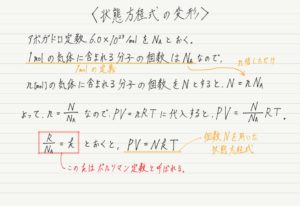 〈状態方程式の変形〉
アボガドロ定数 6.0×10²³/mol を NA とおく。
1molの気体に含まれる分子の個数は NA なので、
1molの定義
n倍しただけ
n molの気体に含まれる分子の個数を N とすると、N = nNA
よって、n = N/NA なので、PV = nRT に代入すると、PV = N/NA RT
R/NA = k とおくと、PV = NkT
個数 N を用いた
状態方程式
この k はボルツマン定数と呼ばれる。